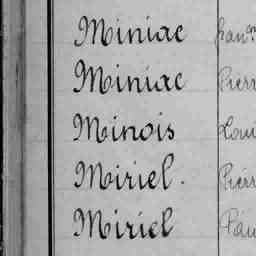 Miniac
Miniac Pierr
Minois Loui
Miriel. Pierr
Miriel